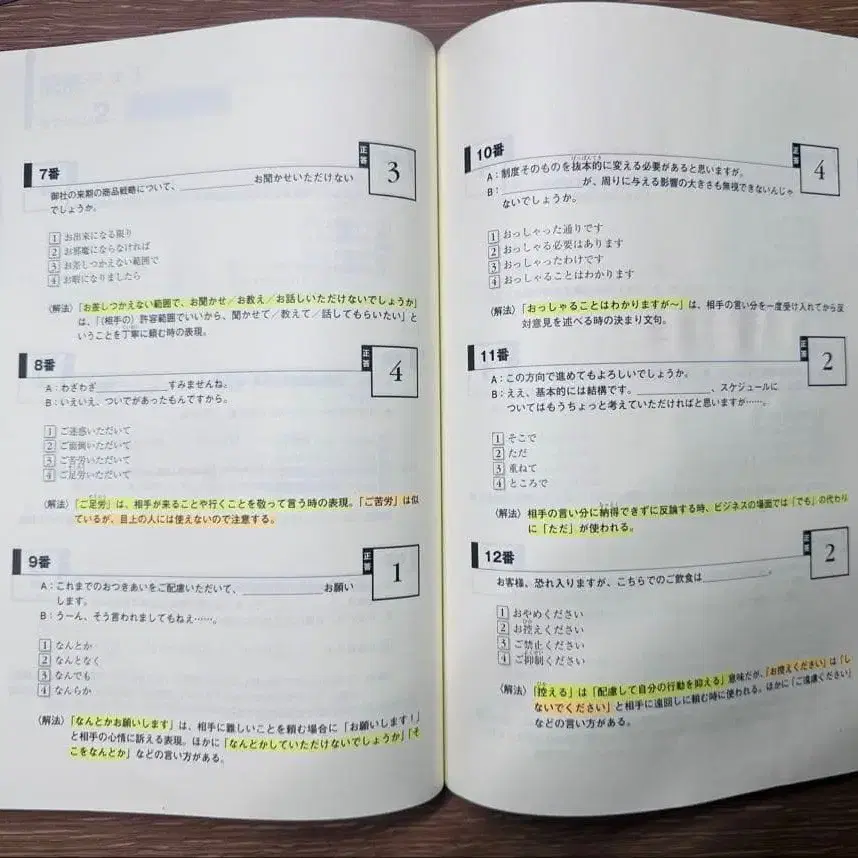 7番
正答
3
御社の来期の商品戦略について、____________お聞かせいただけない
でしょうか。
1 お出来になる限り
2 お邪魔にならなければ
3 お差しつかえない範囲で
4 お暇になりましたら
〈解法〉「お差しつかえない範囲で、お聞かせ／お教え／お話しいただけないでしょうか」
は、「(相手の) 許容範囲でいいから、聞かせて／教えて／話してもらいたい」と
いうことを丁寧に頼む時の表現。
8番
正答
4
A：わざわざ____________すみませんね。
B：いえいえ、ついでがあったもんですから。
1 ご迷惑いただいて
2 ご面倒いただいて
3 ご苦労いただいて
4 ご足労いただいて
〈解法〉「ご足労」は、相手が来ることや行くことを敬って言う時の表現。「ご苦労」は似
ているが、目上の人には使えないので注意する。
9番
正答
1
A：これまでのおつきあいをご配慮いただいて、____________お願い
します。
B：うーん、そう言われましてもねえ……。
1 なんとか
2 なんとなく
3 なんでも
4 なんらか
〈解法〉「なんとかお願いします」は、相手に難しいことを頼む場合に「お願いします！」
と相手の心情に訴える表現。ほかに「なんとかしていただけないでしょうか」「そ
こをなんとか」などの言い方がある。
10番
正答
4
A：制度そのものを抜本的に変える必要があると思いますが。
B：____________が、周りに与える影響の大きさも無視できないんじゃ
ないでしょうか。
1 おっしゃった通りです
2 おっしゃる必要はあります
3 おっしゃったわけです
4 おっしゃることはわかります
〈解法〉「おっしゃることはわかりますが〜」は、相手の言い分を一度受け入れてから反
対意見を述べる時の決まり文句。
11番
正答
2
A：この方向で進めてもよろしいでしょうか。
B：ええ、基本的には結構です。____________、スケジュールに
ついてはもうちょっと考えていただければと思いますが……。
1 そこで
2 ただ
3 重ねて
4 ところで
〈解法〉相手の言い分に納得できずに反論する時、ビジネスの場面では「でも」の代わり
に「ただ」が使われる。
12番
正答
2
お客様、恐れ入りますが、こちらでのご飲食は____________。
1 おやめください
2 お控えください
3 ご禁止ください
4 ご抑制ください
〈解法〉「控える」は「配慮して自分の行動を抑える」意味だが、「お控えください」は「し
ないでください」と相手に遠回しに頼む時に使われる。ほかに「ご遠慮ください」
などの言い方がある。